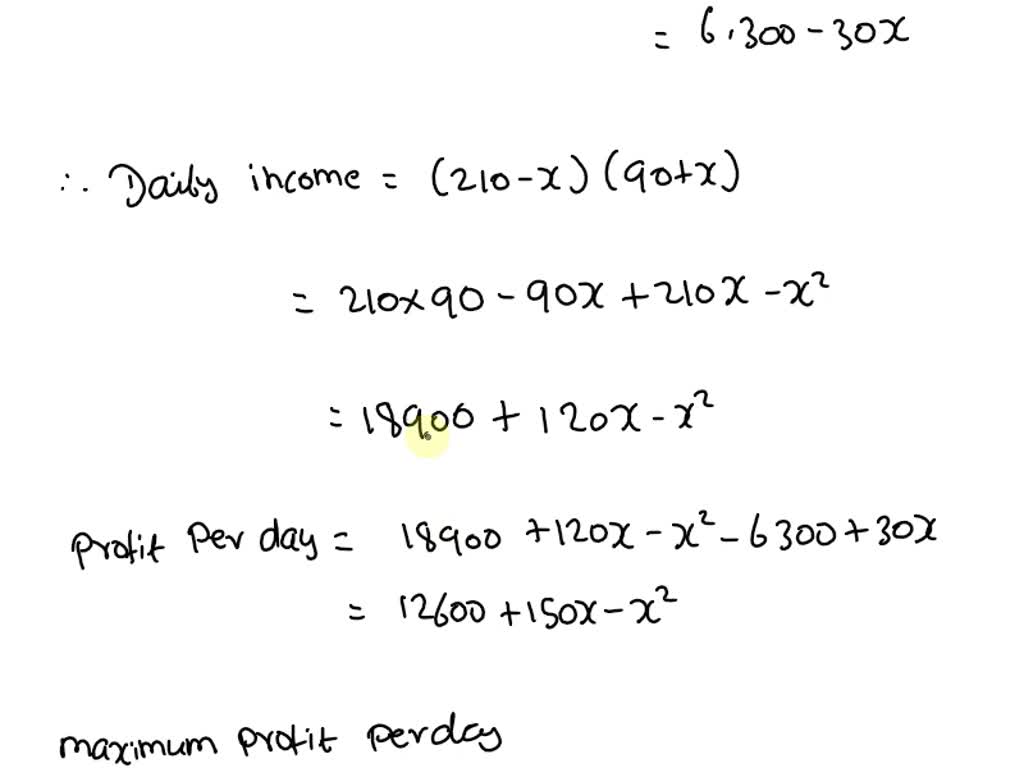 = 6,300 - 30x
∴ Daily income = (210-x)(90+x)
= 210×90 - 90x + 210x - x²
= 18900 + 120x - x²
profit per day = 18900 + 120x - x² - 6300 + 30x
= 12600 + 150x - x²
maximum profit per day